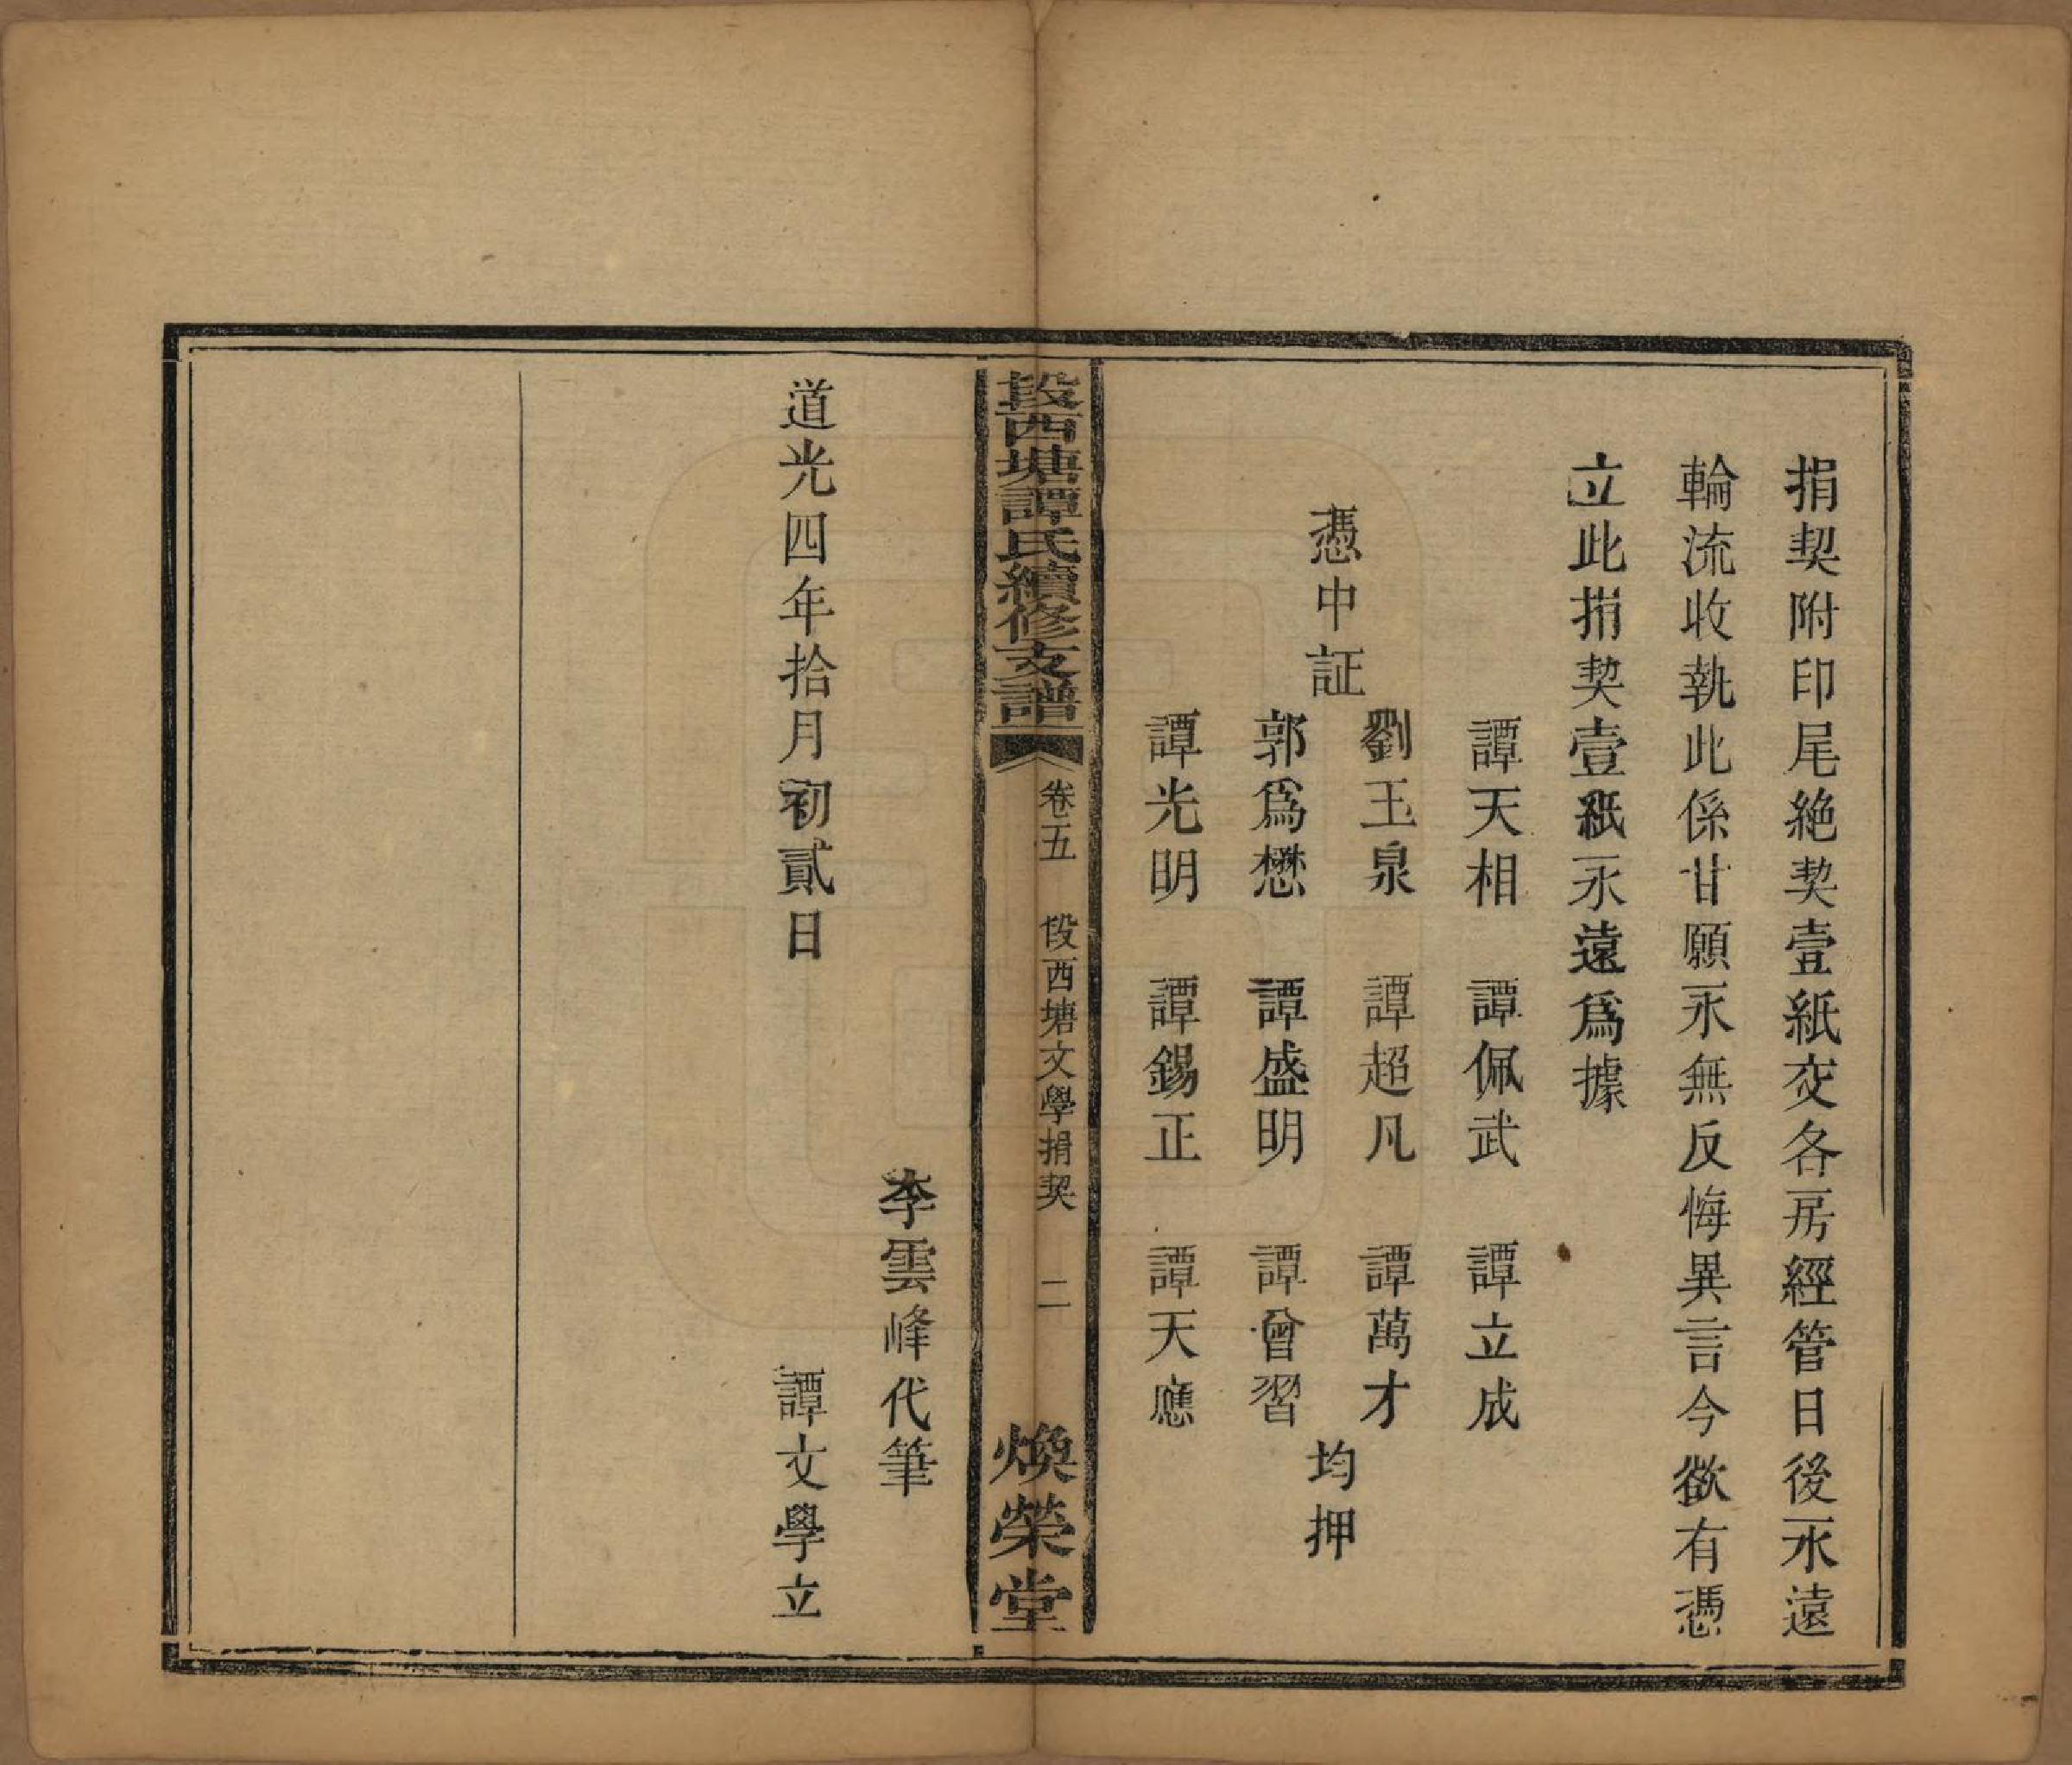 捐契附印尾絶契壹紙交各房經管日後永遠
輪流收執此係甘願永無反悔異言今欲有憑
立此捐契壹紙永遠爲據
譚天相 譚佩武 譚立成
劉玉泉 譚超凡 譚萬才
憑中証 均押
郭爲懋 譚盛明 譚曾習
譚光明 譚錫正 譚天應
段西塘譚氏續修支譜 卷五 段西塘文學捐契 二 煥榮堂
李雲峰代筆
道光四年拾月初貳日 譚文學立